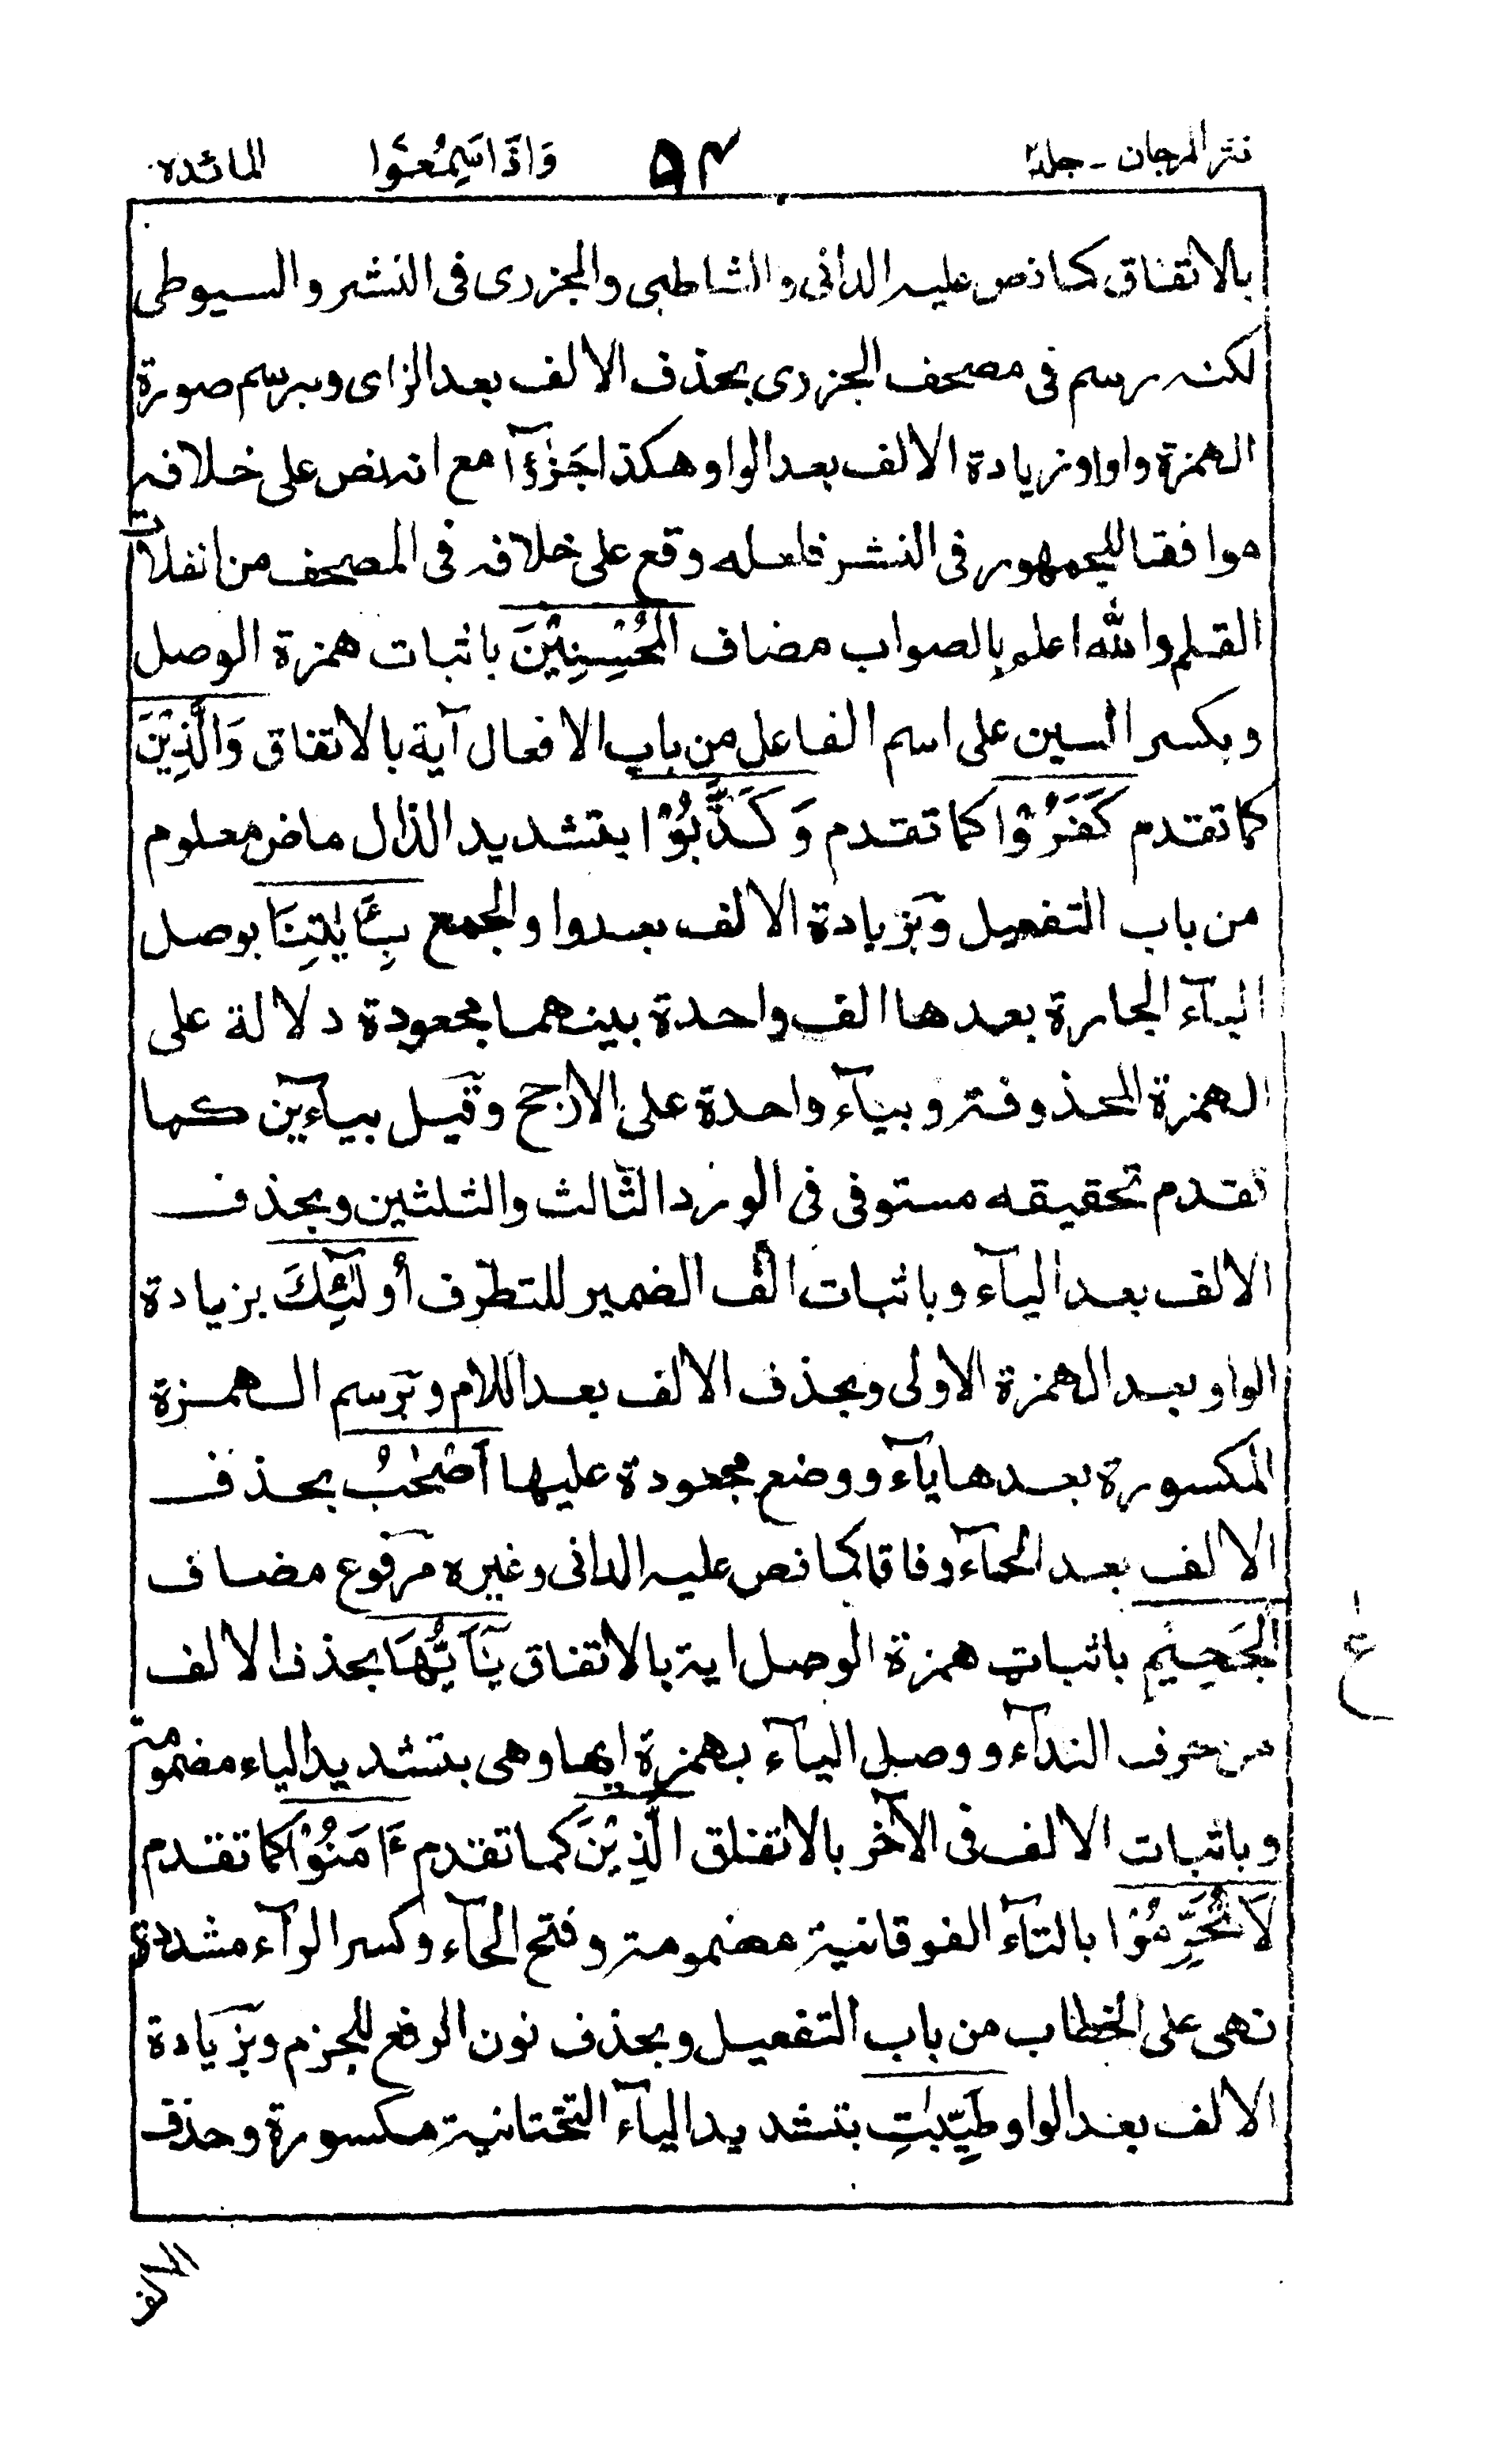 نثر المرجان - جلد٢ ٥٤ وَاذَا سَمِعُوْا المائدة
بالاتفاق كما نص عليه الدانى والشاطبى والجزرى فى النشر والسيوطى
لكنه رسم فى مصحف الجزرى بحذف الالف بعد الزاى وبرسم صورة
الهمزة واوا وزيادة الالف بعد الواو هكذا جَزٰٓؤُا مع انه نص على خلافه
موافقا للجمهور فى النشر فلعله وقع على خلافه فى المصحف من انفلات
القلم والله اعلم بالصواب مضاف الْمُحْسِنِيْنَ باثبات همزة الوصل
وبكسر السين على اسم الفاعل من باب الافعال آية بالاتفاق وَالَّذِيْنَ
كما تقدم كَفَرُوْا كما تقدم وَكَذَّبُوْا بتشديد الذال ماض معلوم
من باب التفعيل وبزيادة الالف بعد واو الجمع بِـَٔايٰتِنَا بوصل
البآء الجارة بعدها الف واحدة بينهما مجعودة دلالة على
الهمزة المحذوفة وبيآء واحدة على الارجح وقيل بيآءين كما
تقدم تحقيقه مستوفى فى الورد الثالث والثلثين وبحذف
الالف بعد اليآء وباثبات الف الضمير للتطرف أُولٰٓئِكَ بزيادة
الواو بعد الهمزة الاولى وبحذف الالف بعد اللام وبرسم الهمزة
المكسورة بعدها يآء ووضع مجعودة عليها اَصْحٰبُ بحذف
الالف بعد الحآء وفاقا كما نص عليه الدانى وغيره مرفوع مضاف
الْجَحِيْمِ باثبات همزة الوصل اية بالاتفاق يٰٓاَيُّهَا بحذف الالف
من حرف الندآء ووصل اليآء بهمزة ايها وهى بتشديد الياء مضمومة
وباثبات الالف فى الآخر بالاتفاق الَّذِيْنَ كما تقدم ءَامَنُوْا كما تقدم
لَا تُحَرِّمُوْا بالتآء الفوقانية مضمومة وفتح الحآء وكسر الرآء مشددة
نهى على الخطاب من باب التفعيل وبحذف نون الرفع للجزم وبزيادة
الالف بعد الواو طَيِّبٰتِ بتشديد اليآء التحتانية مكسورة وحذف
ع
الالف